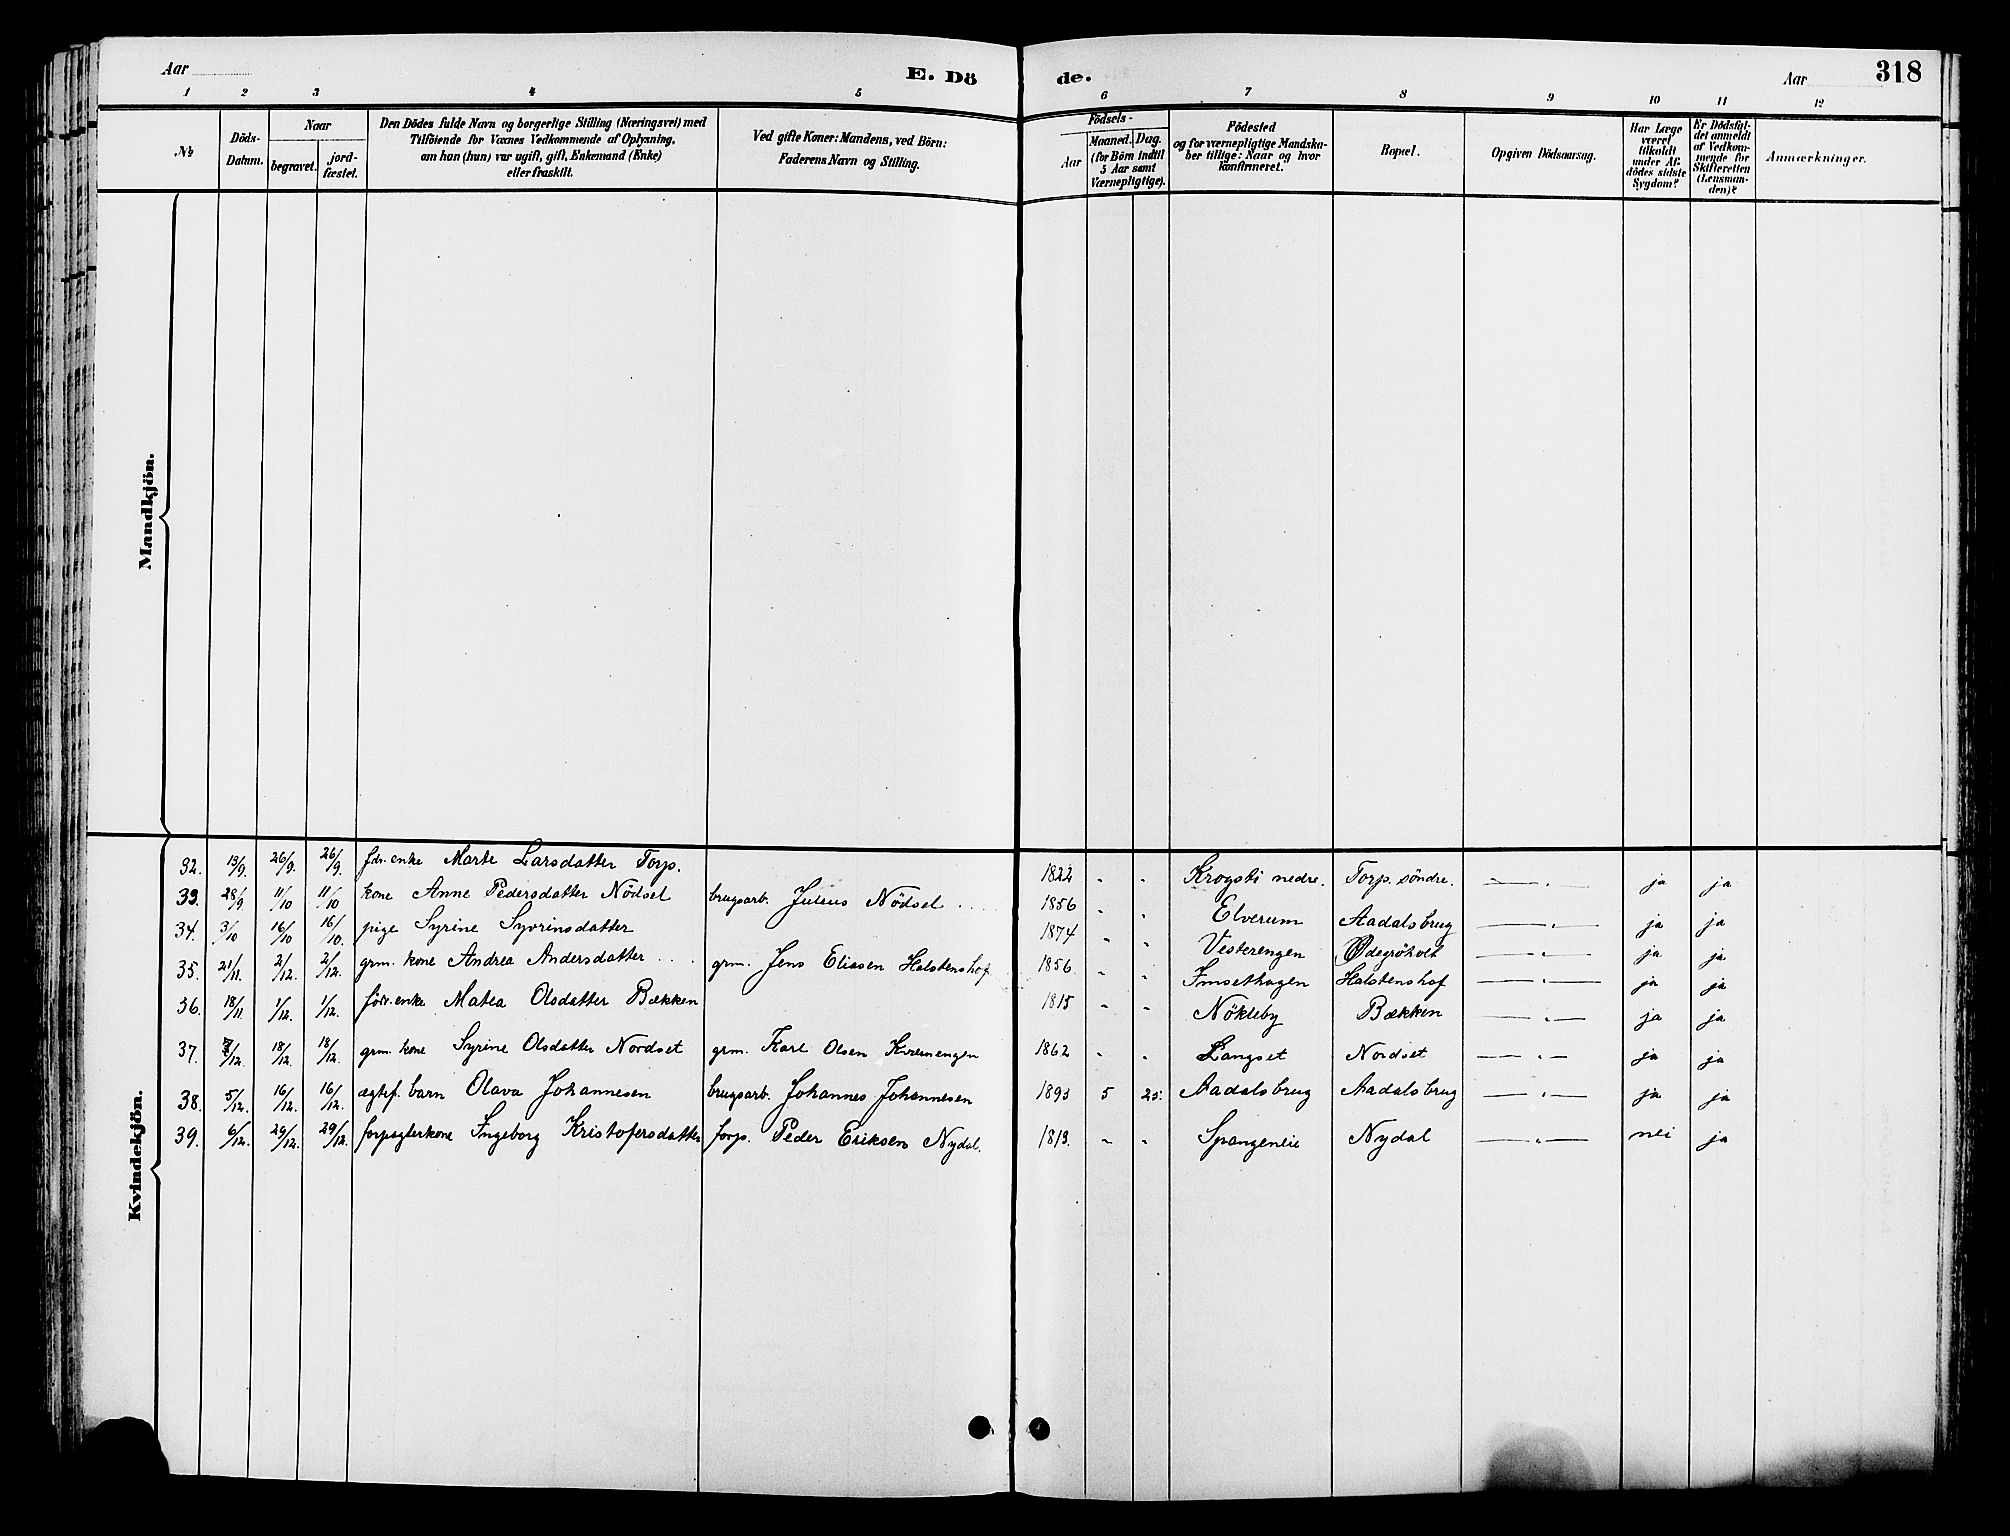 Aar
E. Dö de.
Aar
318
1 2 3 4 5 6 7 8 9 10 11 12
№
Döds-
Datum.
Naar
begravet.
jord-
fæstet.
Den Dödes fulde Navn og borgerlige Stilling (Næringsvei) med
Tilföiende for Voxnes Vedkommende af Oplysning,
om han (hun) var ugift, gift, Enkemand (Enke)
eller fraskilt.
Ved gifte Koner: Mandens, ved Börn:
Faderens Navn og Stilling.
Födsels-
Aar
Maaned. Dag.
(for Börn indtil
5 Aar samt
Værnepligtige).
Födested
og for værnepligtige Mandska-
ber tillige: Naar og hvor
konfirmeret.
Bopæl.
Opgiven Dödsaarsag.
Har Læge
været
tilkaldt
under Af-
dödes sidste
Sygdom?
Er Dödsfal-
det anmeldt
af Vedkom-
mende for
Skifteretten
(Lensman-
den)?
Anmærkninger.
Mandkjön.
Kvindekjön.
32. 19/9. 26/9. 26/9. fdr. enke Marte Larsdatter Torp. 1822 " " Krogsti nedre. Torp söndre. — " — ja ja
33. 28/9 11/10 11/10 kone Anne Pedersdatter Nödsel brugsarb. Julius Nödsel 1856 " " Elverum Aadalsbrug — " — ja ja
34. 3/10 16/10 16/10. pige Syrine Syvrinsdatter 1874 " " Vesterengen — " — ja ja
35. 21/11. 2/12. 2/12. grm. kone Andrea Andersdatter grm. Jens Eliasen Halstenshof 1856. " " Imsethagen Halstenshof — " — ja ja
36. 18/11. 1/12. 1/12. födr. enke Matea Olsdatter Bækken 1815 " " Nökleby Bækken — " — ja ja
37. /12. 18/12. 18/12. grm. kone Syrine Olsdatter Nordset grm. Karl Olsen Kværnengen 1862 " " Langset Nordset — " — ja ja
38. 5/12. 16/12. 16/12. ægtef. barn Olava Johannesen brugsarb. Johannes Johannesen 1893 5 25. Aadalsbrug Aadalsbrug — " — ja ja
39. 6/12. 29/12. 29/12. forpagterkone Ingeborg Kristofersdatter forp. Peder Eriksen Nydal. 1813. " " Spangeneie Nydal — " — nei ja